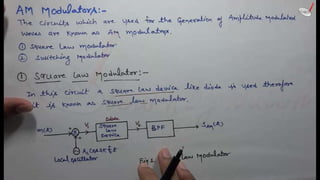 AM Modulators:-
The circuits which are used for the Generation of Amplitude Modulated
waves are known as AM modulators.
① Square Law modulator
② Switching Modulator
① Square Law Modulator:-
In this circuit a square law device like diode is used therefore
it is known as square law modulator.
Diode
m(t) V₁ Square Law Device V₂ BPF S_AM(t)
Ac Cos2πfct
Local oscillator
Fig 1. Law Modulator